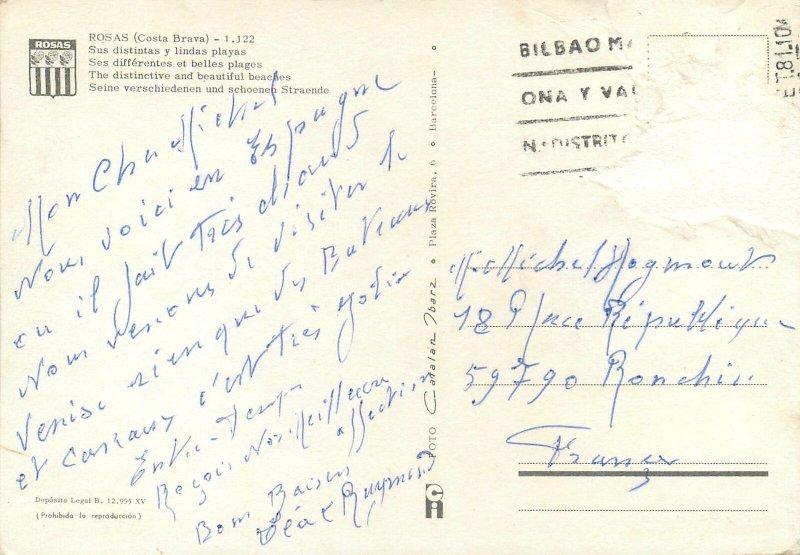 ROSAS
ROSAS (Costa Brava) - 1.122
Sus distintas y lindas playas
Ses différentes et belles plages
The distinctive and beautiful beaches
Seine verschiedenen und schoenen Straende
Mon Cher Michel
Nous voici en Espagne
ou il fait très chaud
Nous venons de visiter la
Venise rien que des Bateaux
et canaux c'est très joli
Entre-Temps
Reçois Nos Meilleures
affection
Bons Baisers
Léa et Raymond
Depósito Legal B. 12.995 XV
(Prohibida la reproducción)
FOTO Catalan Ibarz Plaza Rovira, 6 Barcelona-
BILBAO
ONA Y
N. DISTRIT
8110
M. Michel Hogmout
18 Place République
59790 Ronchin
France